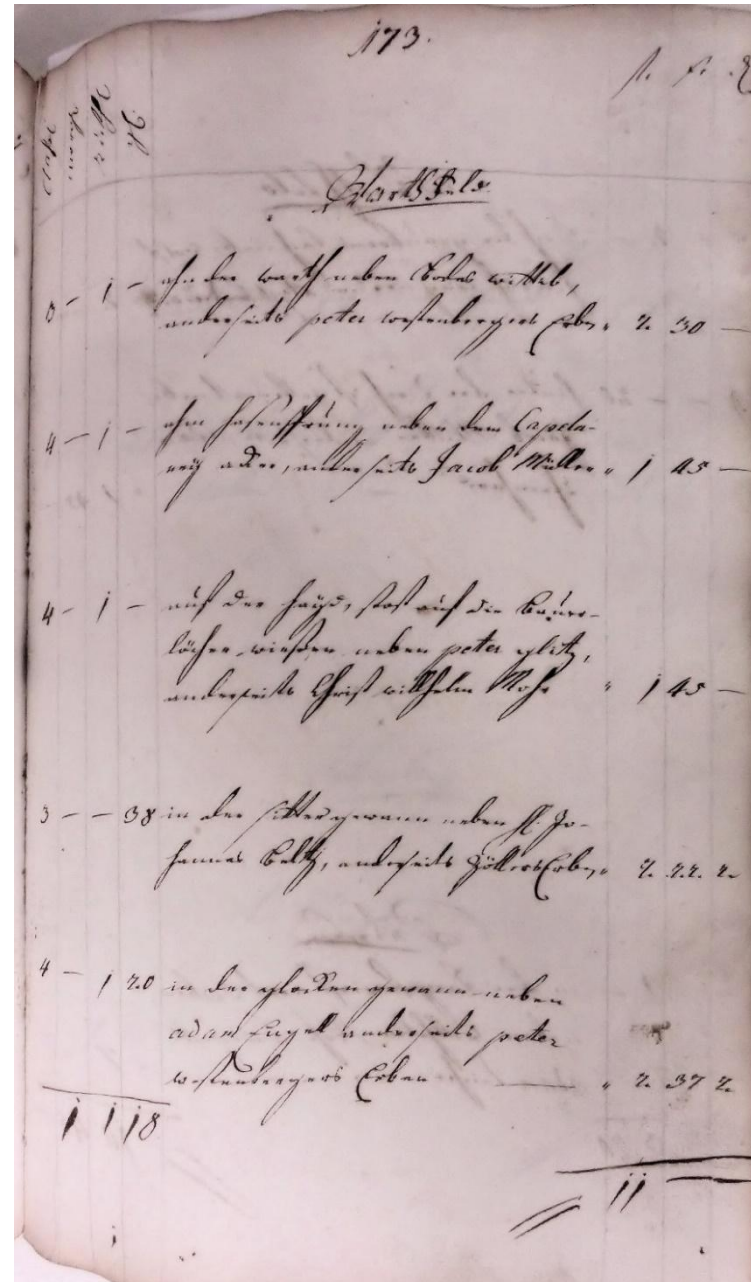 173.
Warth Feld
3 – 1 – ahn der warth neben Bodes wittib,
anderseits peter westenbergers Erben " 2 30 –
4 – 1 – ahm hasensprung neben dem Capela-
ney acker, anderseits Jacob Müller " 1 45 –
4 – 1 – auf der hayd, stost auf die Bauer-
löcher wiesen neben peter glitz,
anderseits Christ willhelm Mohr " 1 45 –
3 – – 38 in der sitter gewann neben H. Jo-
hannes Beltz, anderseits Zöllers Erben " 2 22 2
4 – 1 20 in der glocken gewann neben
adam Engell anderseits peter
westenbergers Erben — " 2 37 2
1 1 18
11 –